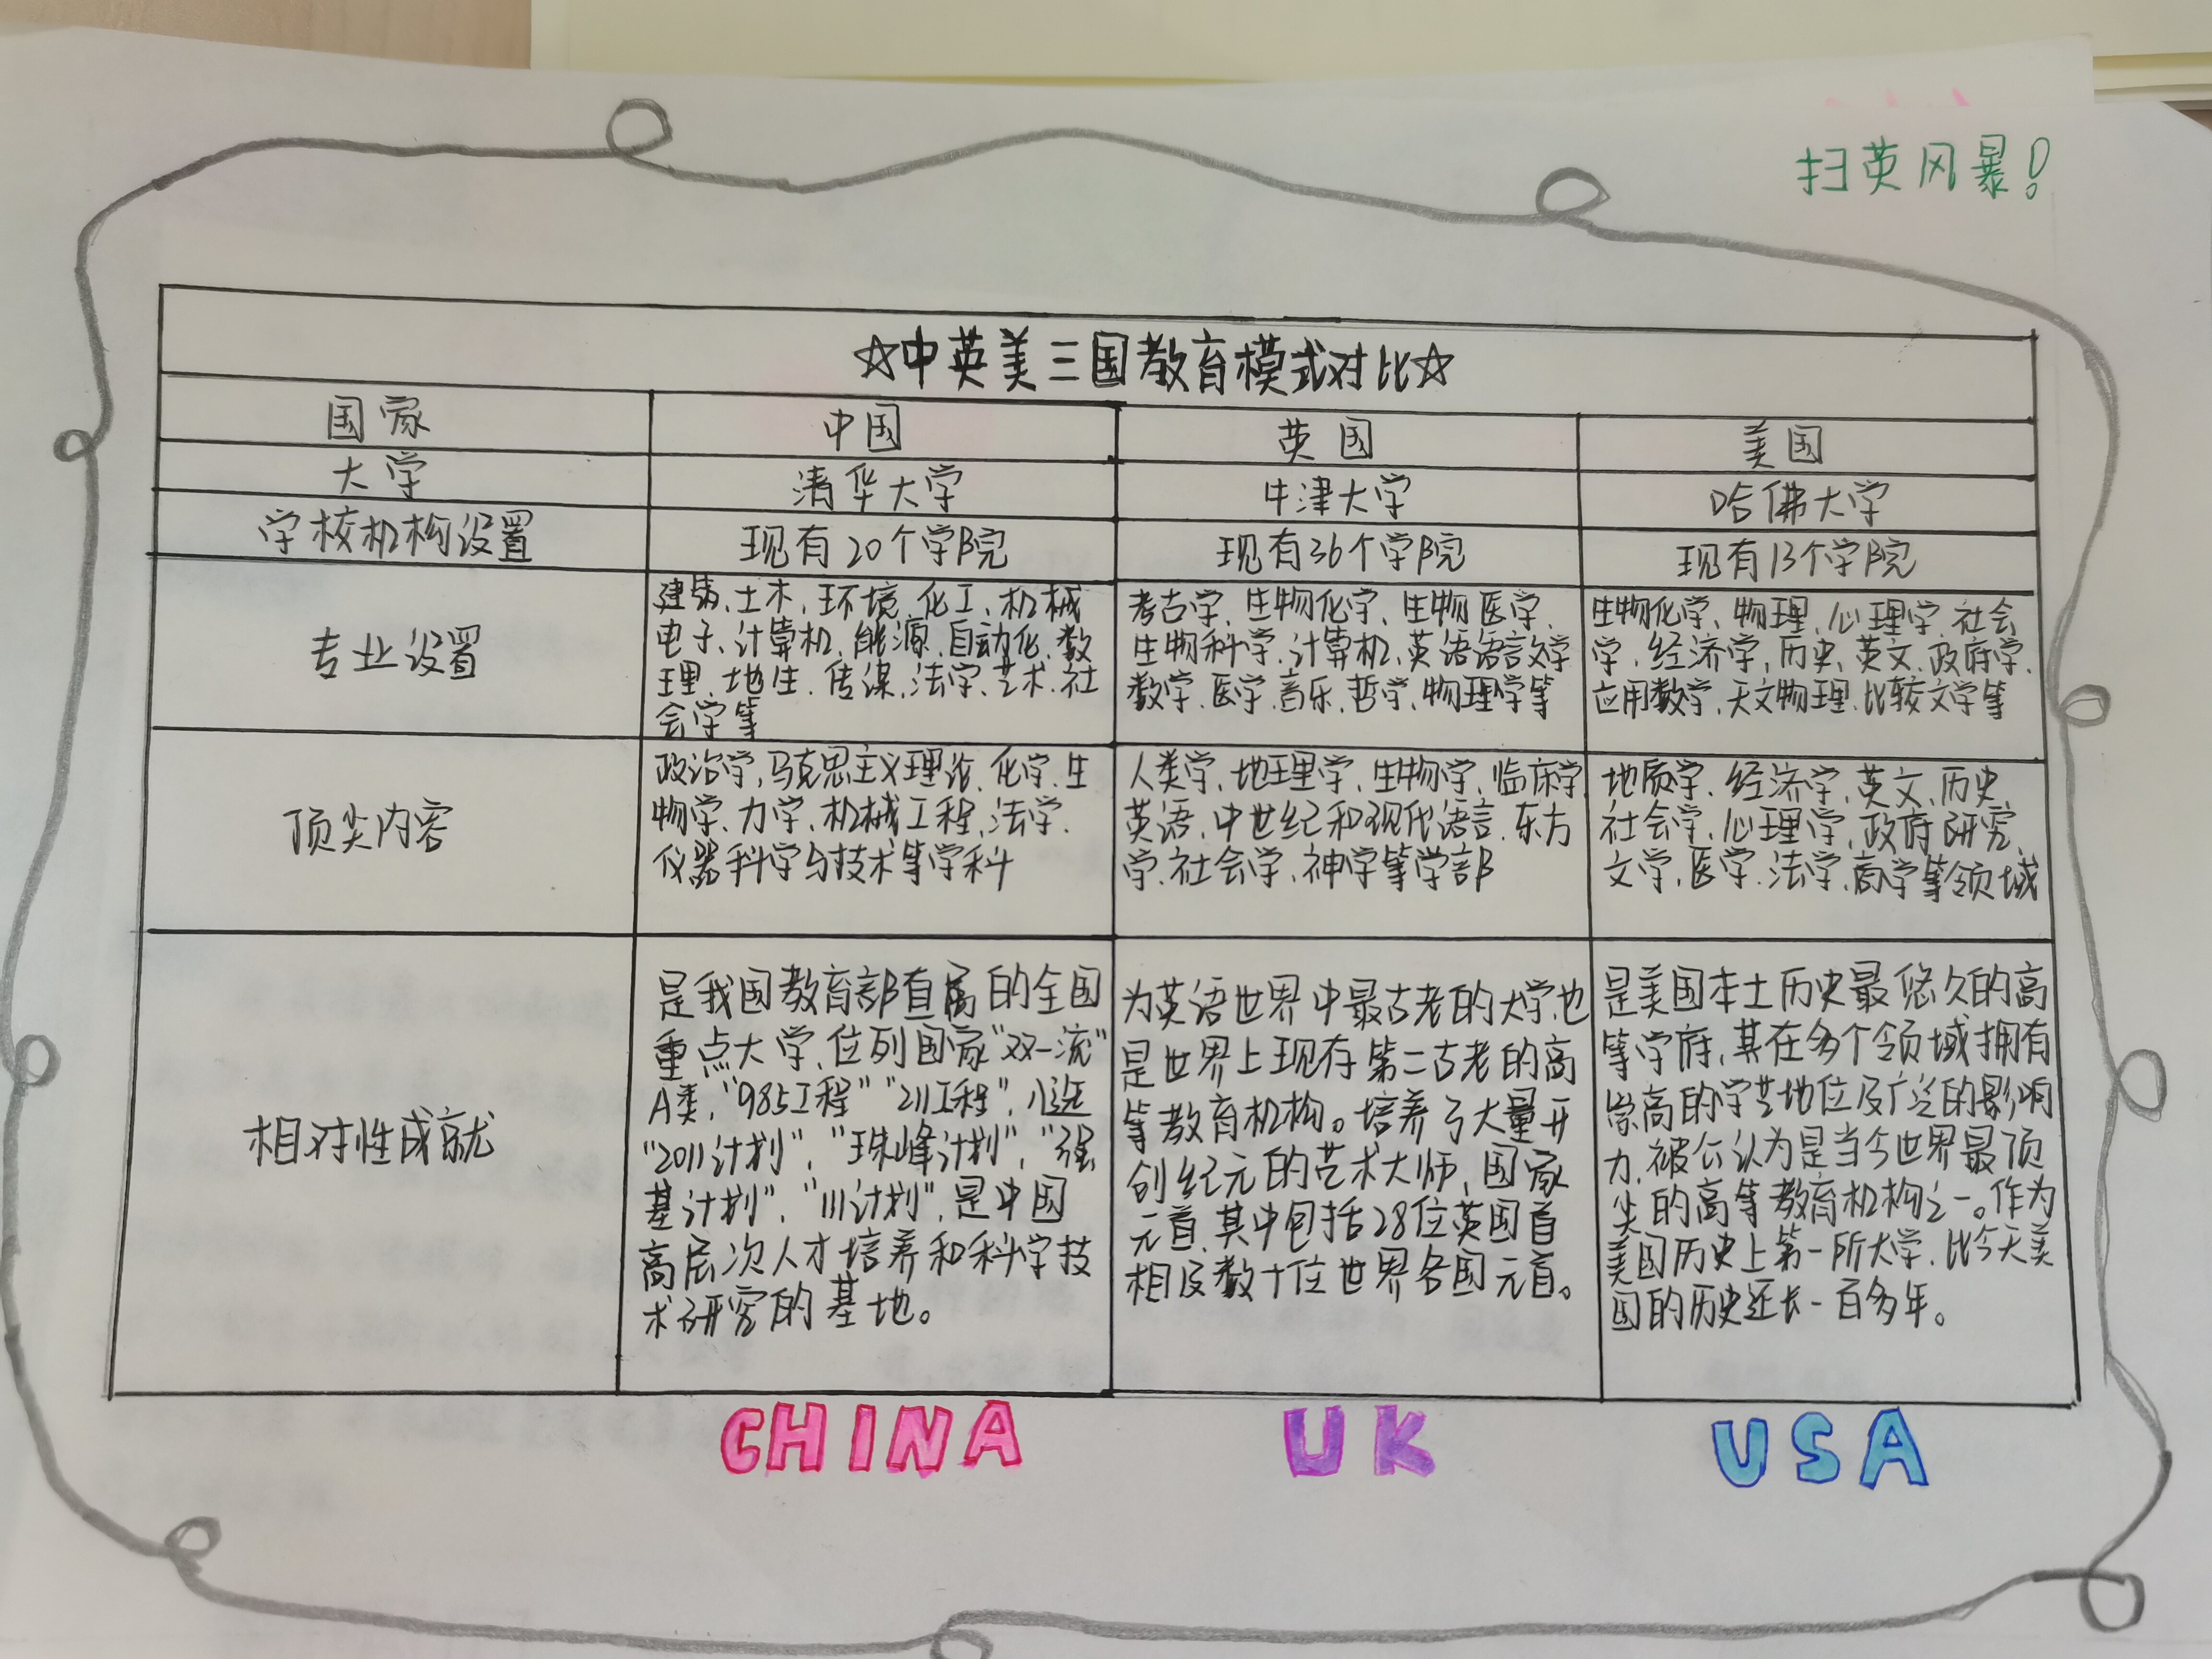 扫英风暴!
☆中英美三国教育模式对比☆
国家
中国
英国
美国
大学
清华大学
牛津大学
哈佛大学
学校机构设置
现有20个学院
现有36个学院
现有13个学院
专业设置
建筑、土木、环境、化工、机械
电子、计算机、能源、自动化、数
理、地生、传媒、法学、艺术、社
会学等
考古学、生物化学、生物医学、
生物科学、计算机、英语语言文学
数学、医学、音乐、哲学、物理学等
生物化学、物理、心理学、社会
学、经济学、历史、英文、政府学、
应用数学、天文物理、比较文学等
顶尖内容
政治学、马克思主义理论、化学、生
物学、力学、机械工程、法学、
仪器科学与技术等学科
人类学、地理学、生物学、临床学
英语、中世纪和现代语言、东方
学、社会学、神学等学部
地质学、经济学、英文、历史、
社会学、心理学、政府研究、
文学、医学、法学、商学等领域
相对性成就
是我国教育部直属的全国
重点大学、位列国家"双一流"
A类,"985工程""211工程",入选
"2011计划","珠峰计划","强
基计划","111计划",是中国
高层次人才培养和科学技
术研究的基地。
为英语世界中最古老的大学,也
是世界上现存第二古老的高
等教育机构。培养了大量开
创纪元的艺术大师,国家
元首,其中包括28位英国首
相及数十位世界各国元首。
是美国本土历史最悠久的高
等学府,其在多个领域拥有
崇高的学术地位及广泛的影响
力,被公认为是当今世界最顶
尖的高等教育机构之一。作为
美国历史上第一所大学,比今天美
国的历史还长一百多年。
CHINA
UK
USA